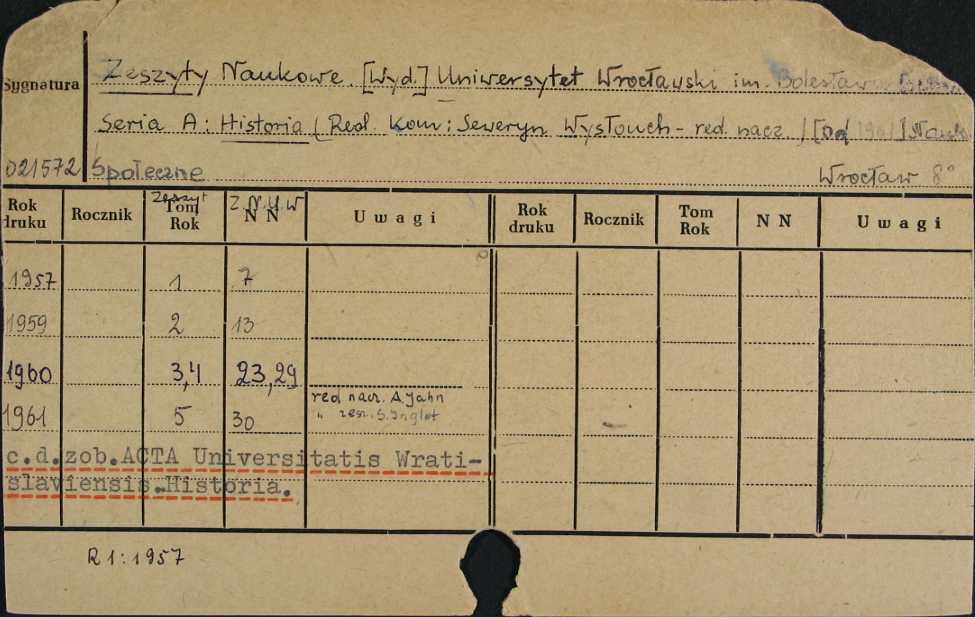 Sygnatura
Zeszyty Naukowe. [Wyd.] Uniwersytet Wrocławski im. Bolesława
Seria A: Historia (Red. Kom: Seweryn Wysłouch - red. nacz.) [Od 1961] Nauki
021572 Społeczne Wrocław 8°
Rok druku Rocznik Zeszyt Tom Rok Z.N.U.W N N Uwagi Rok druku Rocznik Tom Rok N N Uwagi
1957 1 7
1959 2 13
1960 3,4 23,29
1961 5 30 red nacz. A Jahn
" zesz. S. Inglot
c.d.zob.ACTA Universitatis Wrati-
slaviensis.Historia.
R 1:1957